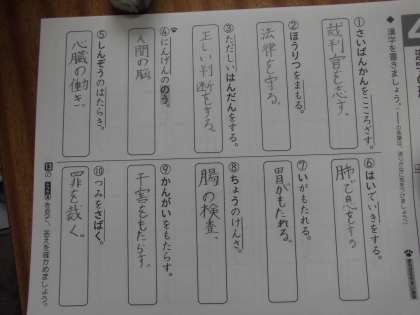 漢字を書きましょう。
①さいばんかんをこころざす。
裁判官を志す。
②ほうりつをまもる。
法律を守る。
③ただしいはんだんをする。
正しい判断をする。
④にんげんののう。
人間の脳
⑤しんぞうのはたらき。
心臓の働き。
⑥はいでいきをする。
肺で息をする
⑦いがもたれる。
胃がもたれる。
⑧ちょうのけんさ。
腸の検査。
⑨かんがいをもたらす。
干害をもたらす。
⑩つみをさばく。
罪を裁く。